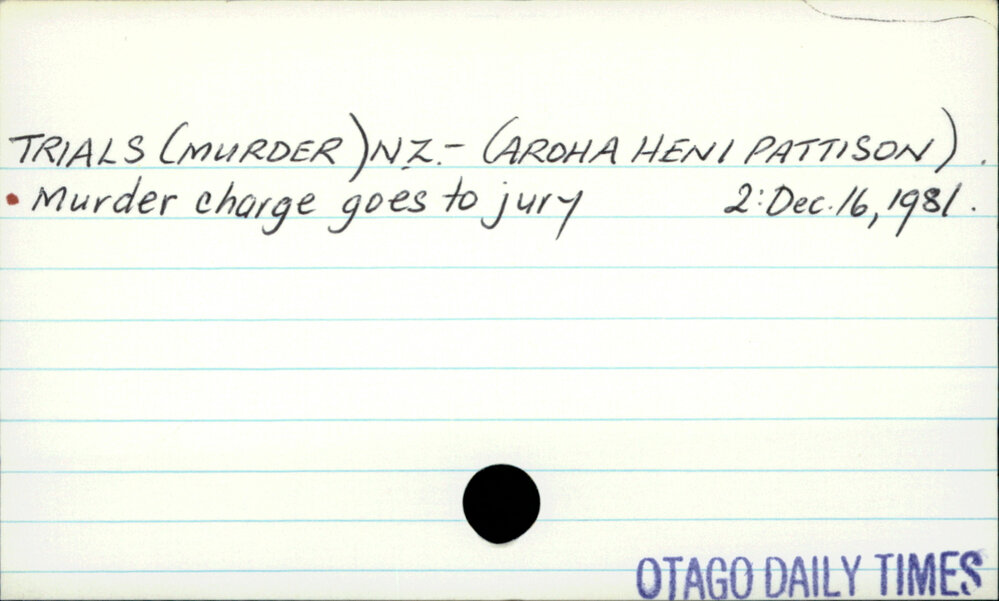 TRIALS (MURDER) NZ.- (AROHA HENI PATTISON).
• Murder charge goes to jury 2: Dec. 16, 1981.
OTAGO DAILY TIMES